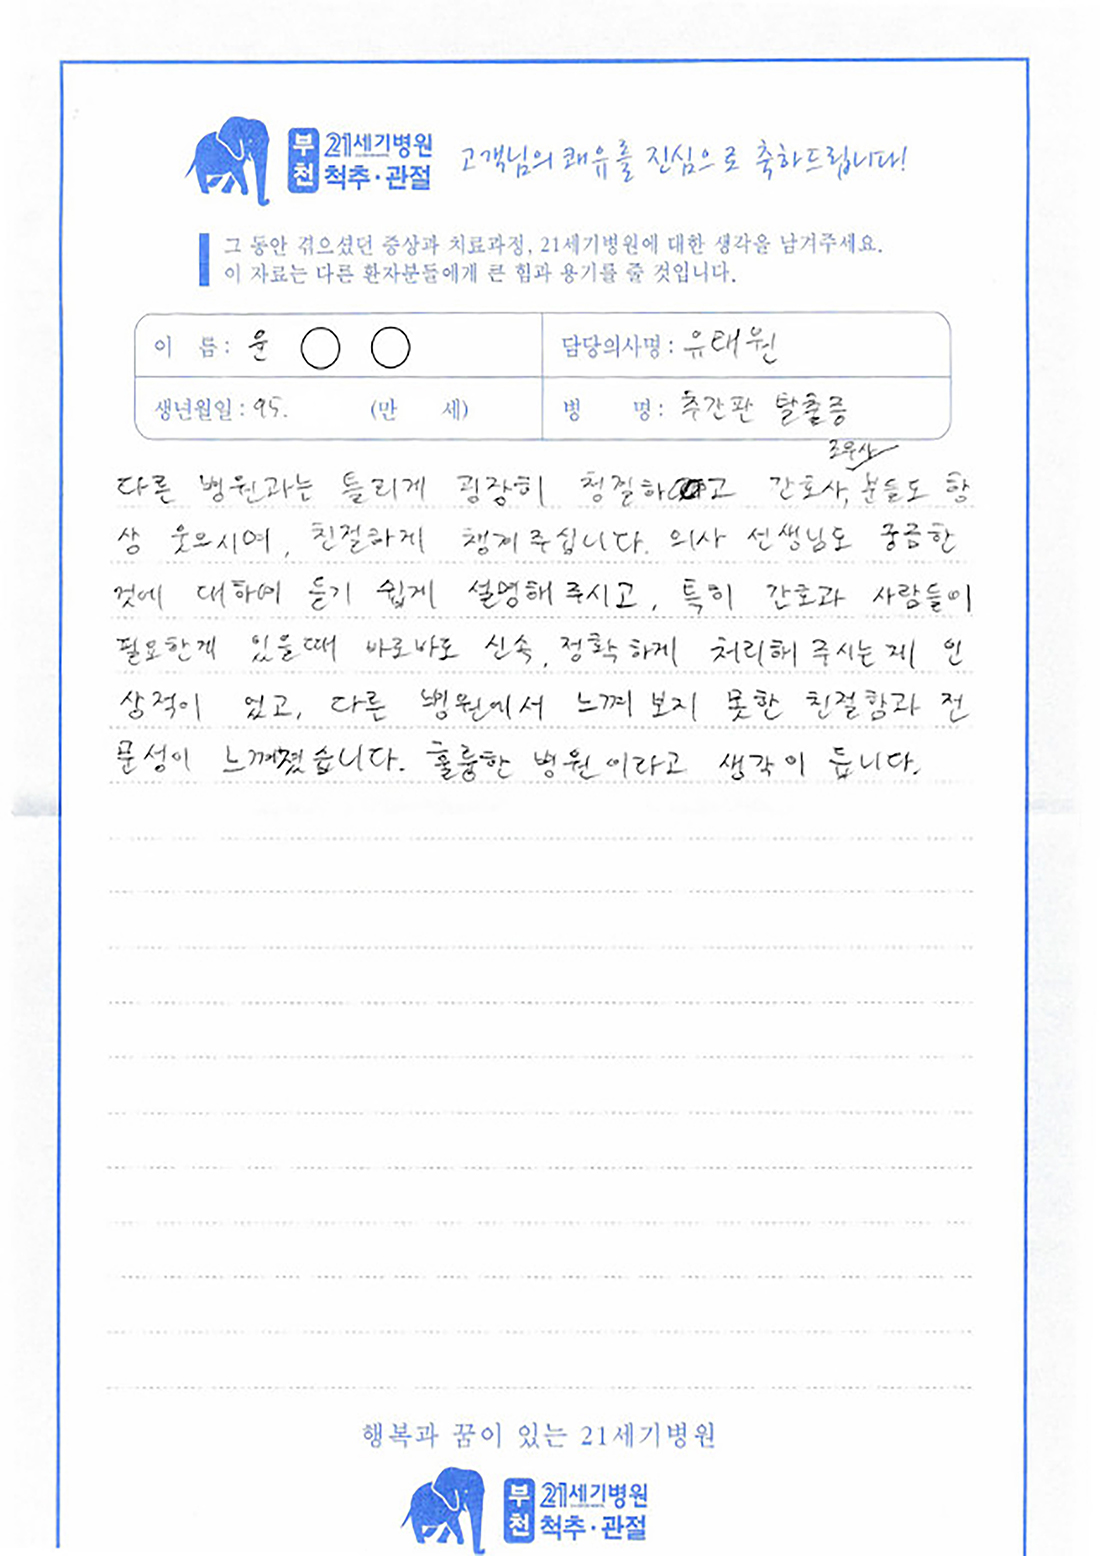 부천 21세기병원 척추·관절 고객님의 쾌유를 진심으로 축하드립니다!
그 동안 겪으셨던 증상과 치료과정, 21세기병원에 대한 생각을 남겨주세요.
이 자료는 다른 환자분들에게 큰 힘과 용기를 줄 것입니다.
이 름 : 윤 ○ ○ 담당의사명 : 유태원
생년월일 : 95. (만 세) 병 명 : 추간판 탈출증
조무사
다른 병원과는 틀리게 굉장히 청결하고 간호사, 분들도 항
상 웃으시며, 친절하게 챙겨주십니다. 의사 선생님도 궁금한
것에 대하여 듣기 쉽게 설명해 주시고, 특히 간호과 사람들이
필요한게 있을때 바로바로 신속, 정확하게 처리해 주시는게 인
상적이 었고, 다른 병원에서 느껴보지 못한 친절함과 전
문성이 느껴졌습니다. 훌륭한 병원이라고 생각이 듭니다.
행복과 꿈이 있는 21세기병원
부천 21세기병원 척추·관절